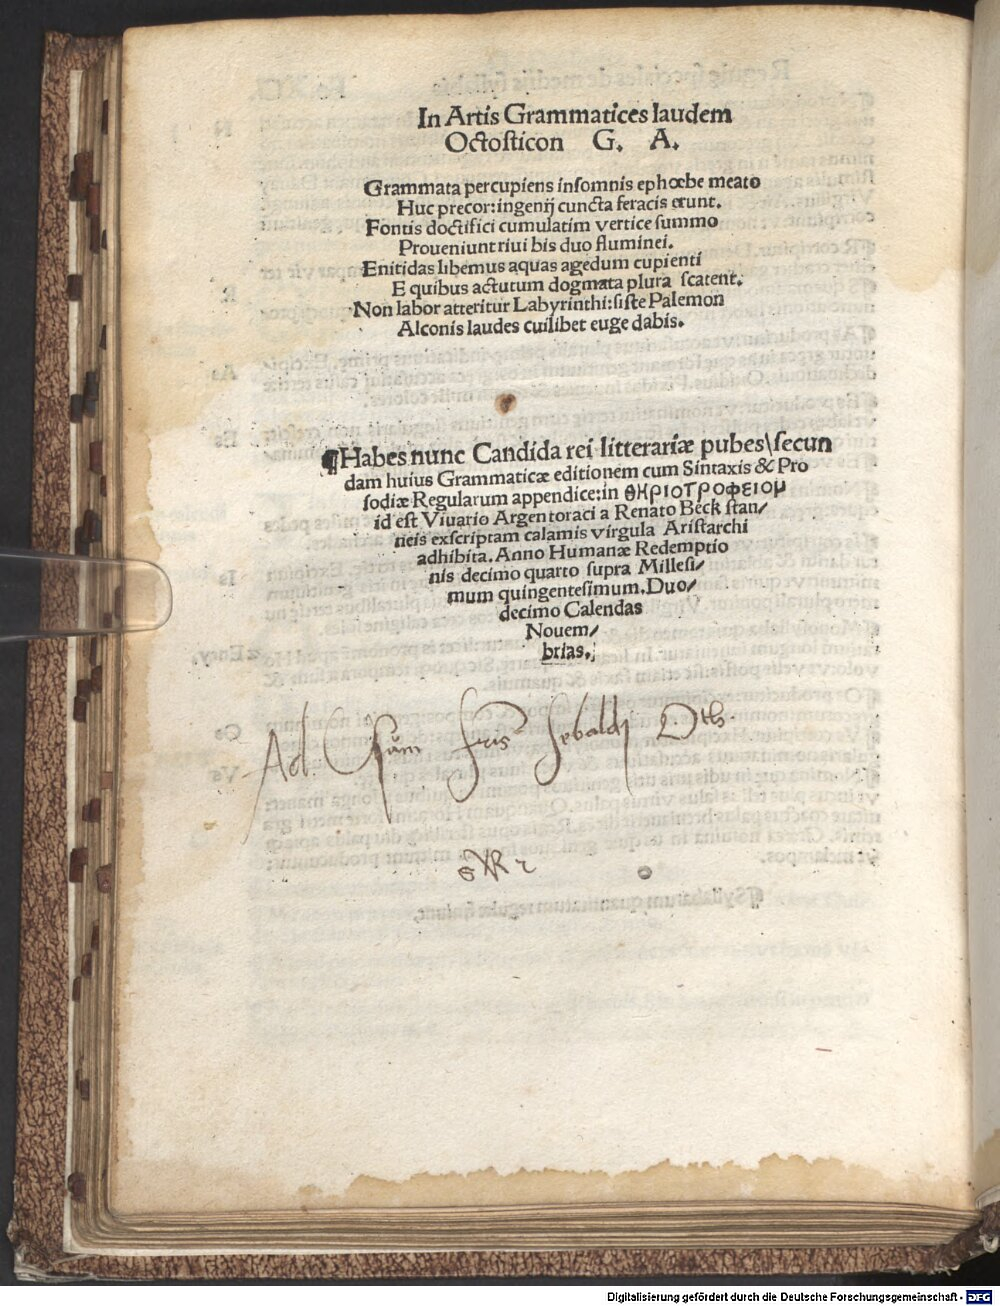 In Artis Grammatices laudem
Octosticon G. A.
Grammata percupiens insomnis ephœbe meato
Huc precor: ingenij cuncta feracis erunt.
Fontis doctifici cumulatim vertice summo
Proueniunt riui bis duo fluminei.
Enitidas libemus aquas agedum cupienti
E quibus actutum dogmata plura scatent.
Non labor atteritur Labyrinthi: siste Palemon
Alconis laudes cuilibet euge dabis.
¶Habes nunc Candida rei litterariæ pubes\secun
dam huius Grammaticæ editionem cum Sintaxis & Pro
sodiæ Regularum appendice: in ΘΗΡΙΟΤΡΟΦΕΙΟΜ
id est Viuario Argentoraci a Renato Beck stan/
neis exscriptam calamis virgula Aristarchi
adhibita. Anno Humanæ Redemptio
nis decimo quarto supra Millesi/
mum quingentesimum. Duo/
decimo Calendas
Nouem/
brias.
Ad Usum fris Sebaldi Oth
Digitalisierung gefördert durch die Deutsche Forschungsgemeinschaft - DFG